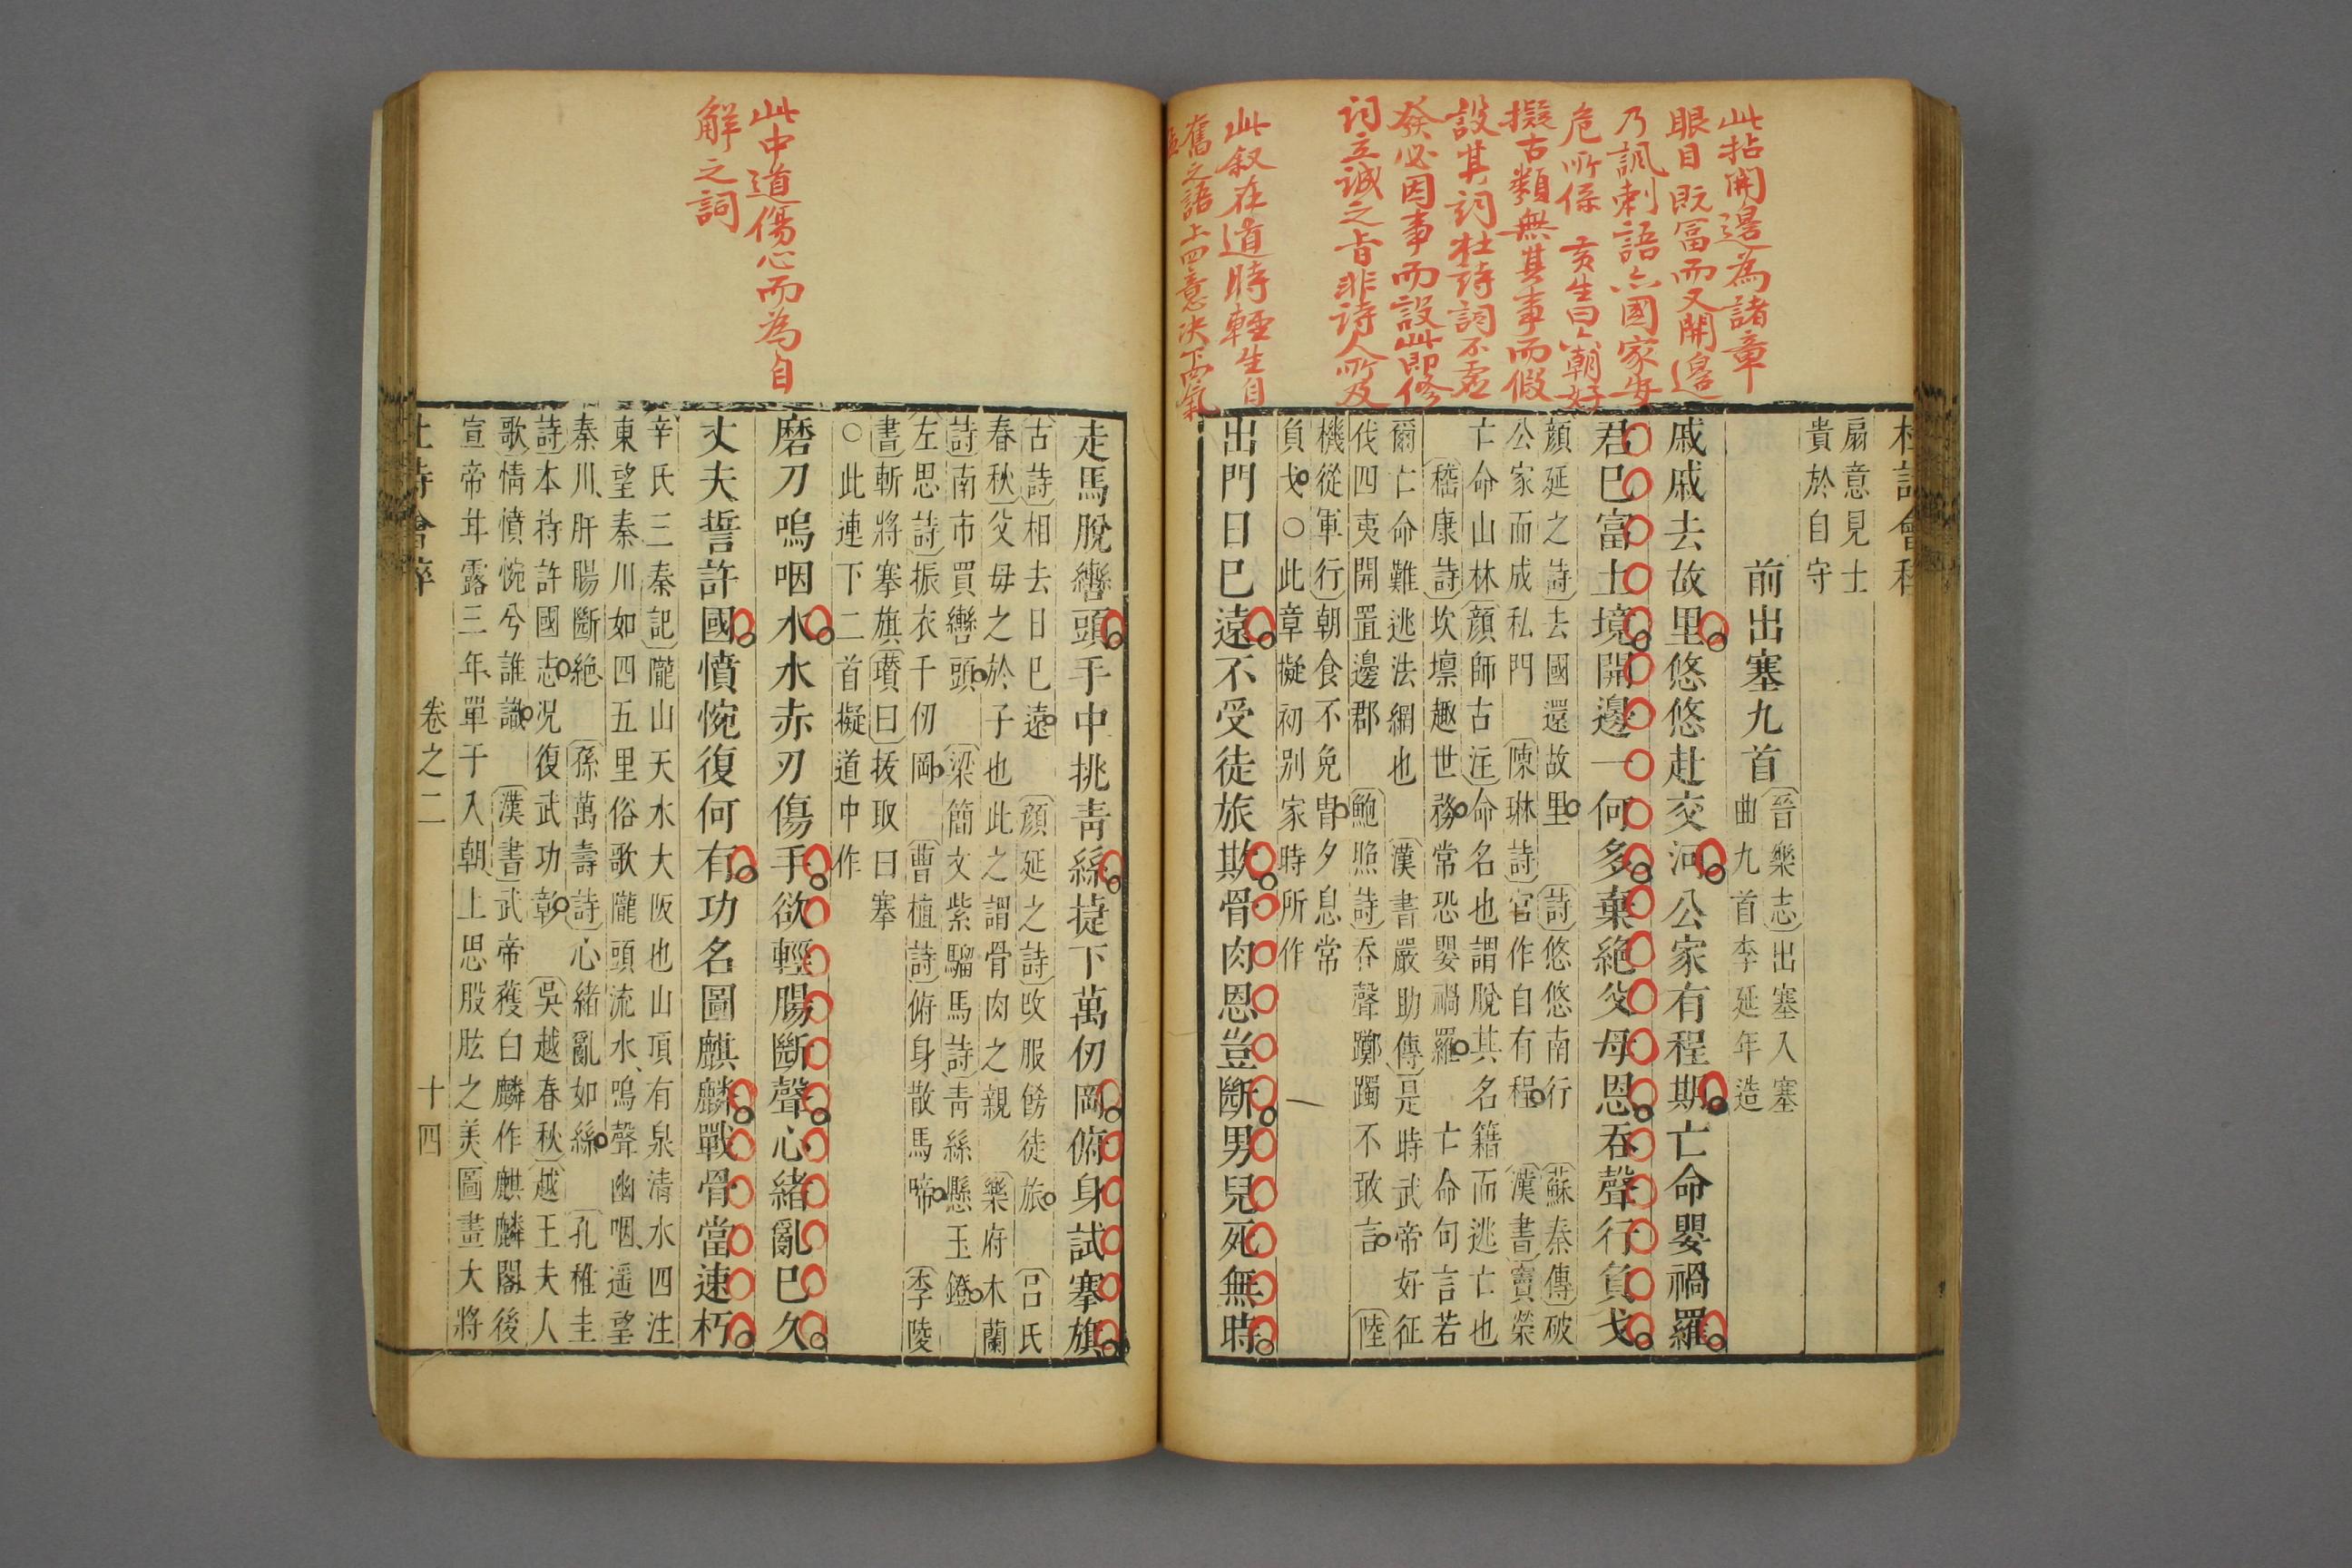 此拈開邊為諸章
眼目既富而又開邊
乃諷刺語亦國家安
危所係 亥生曰六朝好
擬古類無其事而假
設其詞杜詩詞不虛
發必因事而設此即修
詞立誠之旨非詩人所及
此叙在道時輕生自
奮之語上四意决下四氣
扇意見士
貴於自守
前出塞九首
晉樂志出塞入塞
曲九首李延年造
戚戚去故里悠悠赴交河公家有程期亡命嬰禍羅
君已富土境開邊一何多棄絶父母恩吞聲行負戈
顔延之詩去國還故里 詩悠悠南行 蘇秦傳破
公家而成私門 陳琳詩官作自有程 漢書竇榮
亡命山林顔師古注命名也謂脫其名籍而逃亡也
嵇康詩坎壈趣世務常恐嬰禍羅 亡命句言若
爾亡命難逃法網也 漢書嚴助傳是時武帝好征
伐四夷開置邊郡 鮑照詩吞聲躑躅不敢言 陸
機從軍行朝食不免胄夕息常
負戈○此章擬初别家時所作
出門日已遠不受徒旅欺骨肉恩豈斷男兒死無時
走馬脫轡頭手中挑青絲捷下萬仞岡俯身試搴旗
古詩相去日已遠 顔延之詩改服飭徒旅 吕氏
春秋父母之於子也此之謂骨肉之親 樂府木蘭
詩南市買轡頭 梁簡文紫騮馬詩青絲懸玉鐙
左思詩振衣千仞岡 曹植詩俯身散馬啼 李陵
書斬將搴旗瓚曰拔取曰搴
○此連下二首擬道中作
磨刀嗚咽水水赤刃傷手欲輕腸斷聲心緒亂已久
丈夫誓許國憤惋復何有功名圖麒麟戰骨當速朽
辛氏三秦記隴山天水大阪也山頂有泉清水四注
東望秦川如四五里俗歌隴頭流水嗚聲幽咽遥望
秦川肝腸斷絶 孫萬壽詩心緒亂如絲 孔稚圭
詩本持許國志况復武功彰 吳越春秋越王夫人
歌情憤惋兮誰識 漢書武帝獲白麟作麒麟閣後
宣帝甘露三年單于入朝上思股肱之美圖畫大將
卷之二 十四
此中道傷心而為自
解之詞